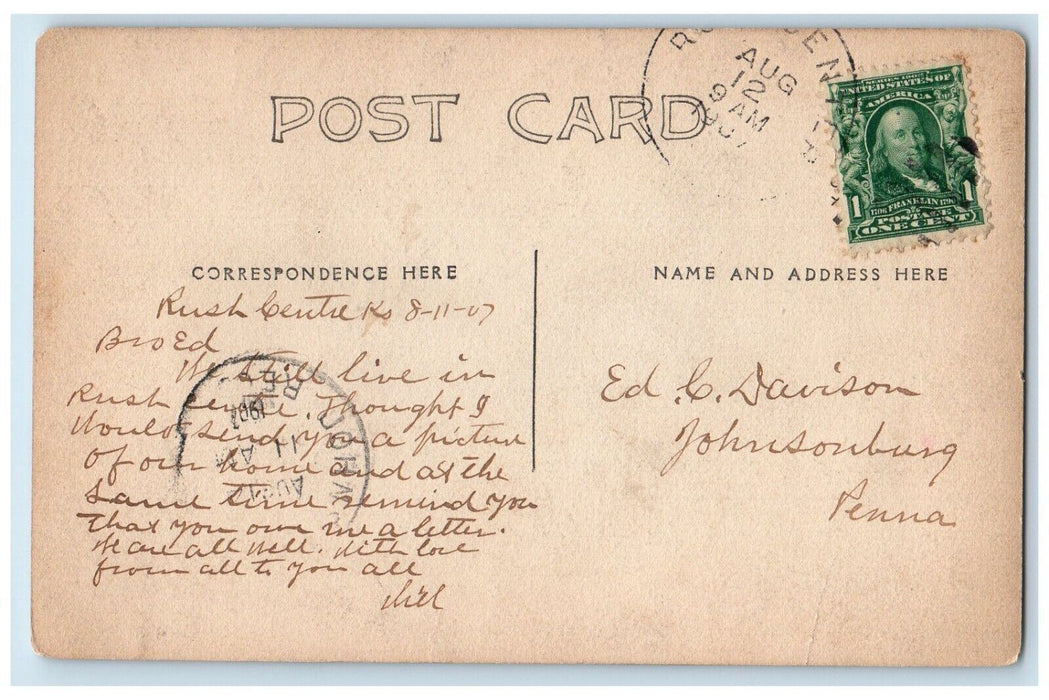 POST CARD
AUG
12
9 AM
SERIES 1902
UNITED STATES OF
AMERICA
1 1
1706 FRANKLIN 1790
POSTAGE
ONE CENT
CORRESPONDENCE HERE
Rush Centre Ks 8-11-07
Bro Ed
We still live in
Rush Centre. Thought I
Would send you a picture
of our home and at the
same time remind you
that you owe me a letter.
We are all well. With love
from all to you all
Will
1907
11 AM
AUG
NAME AND ADDRESS HERE
Ed. C. Davison
Johnsonburg
Penna